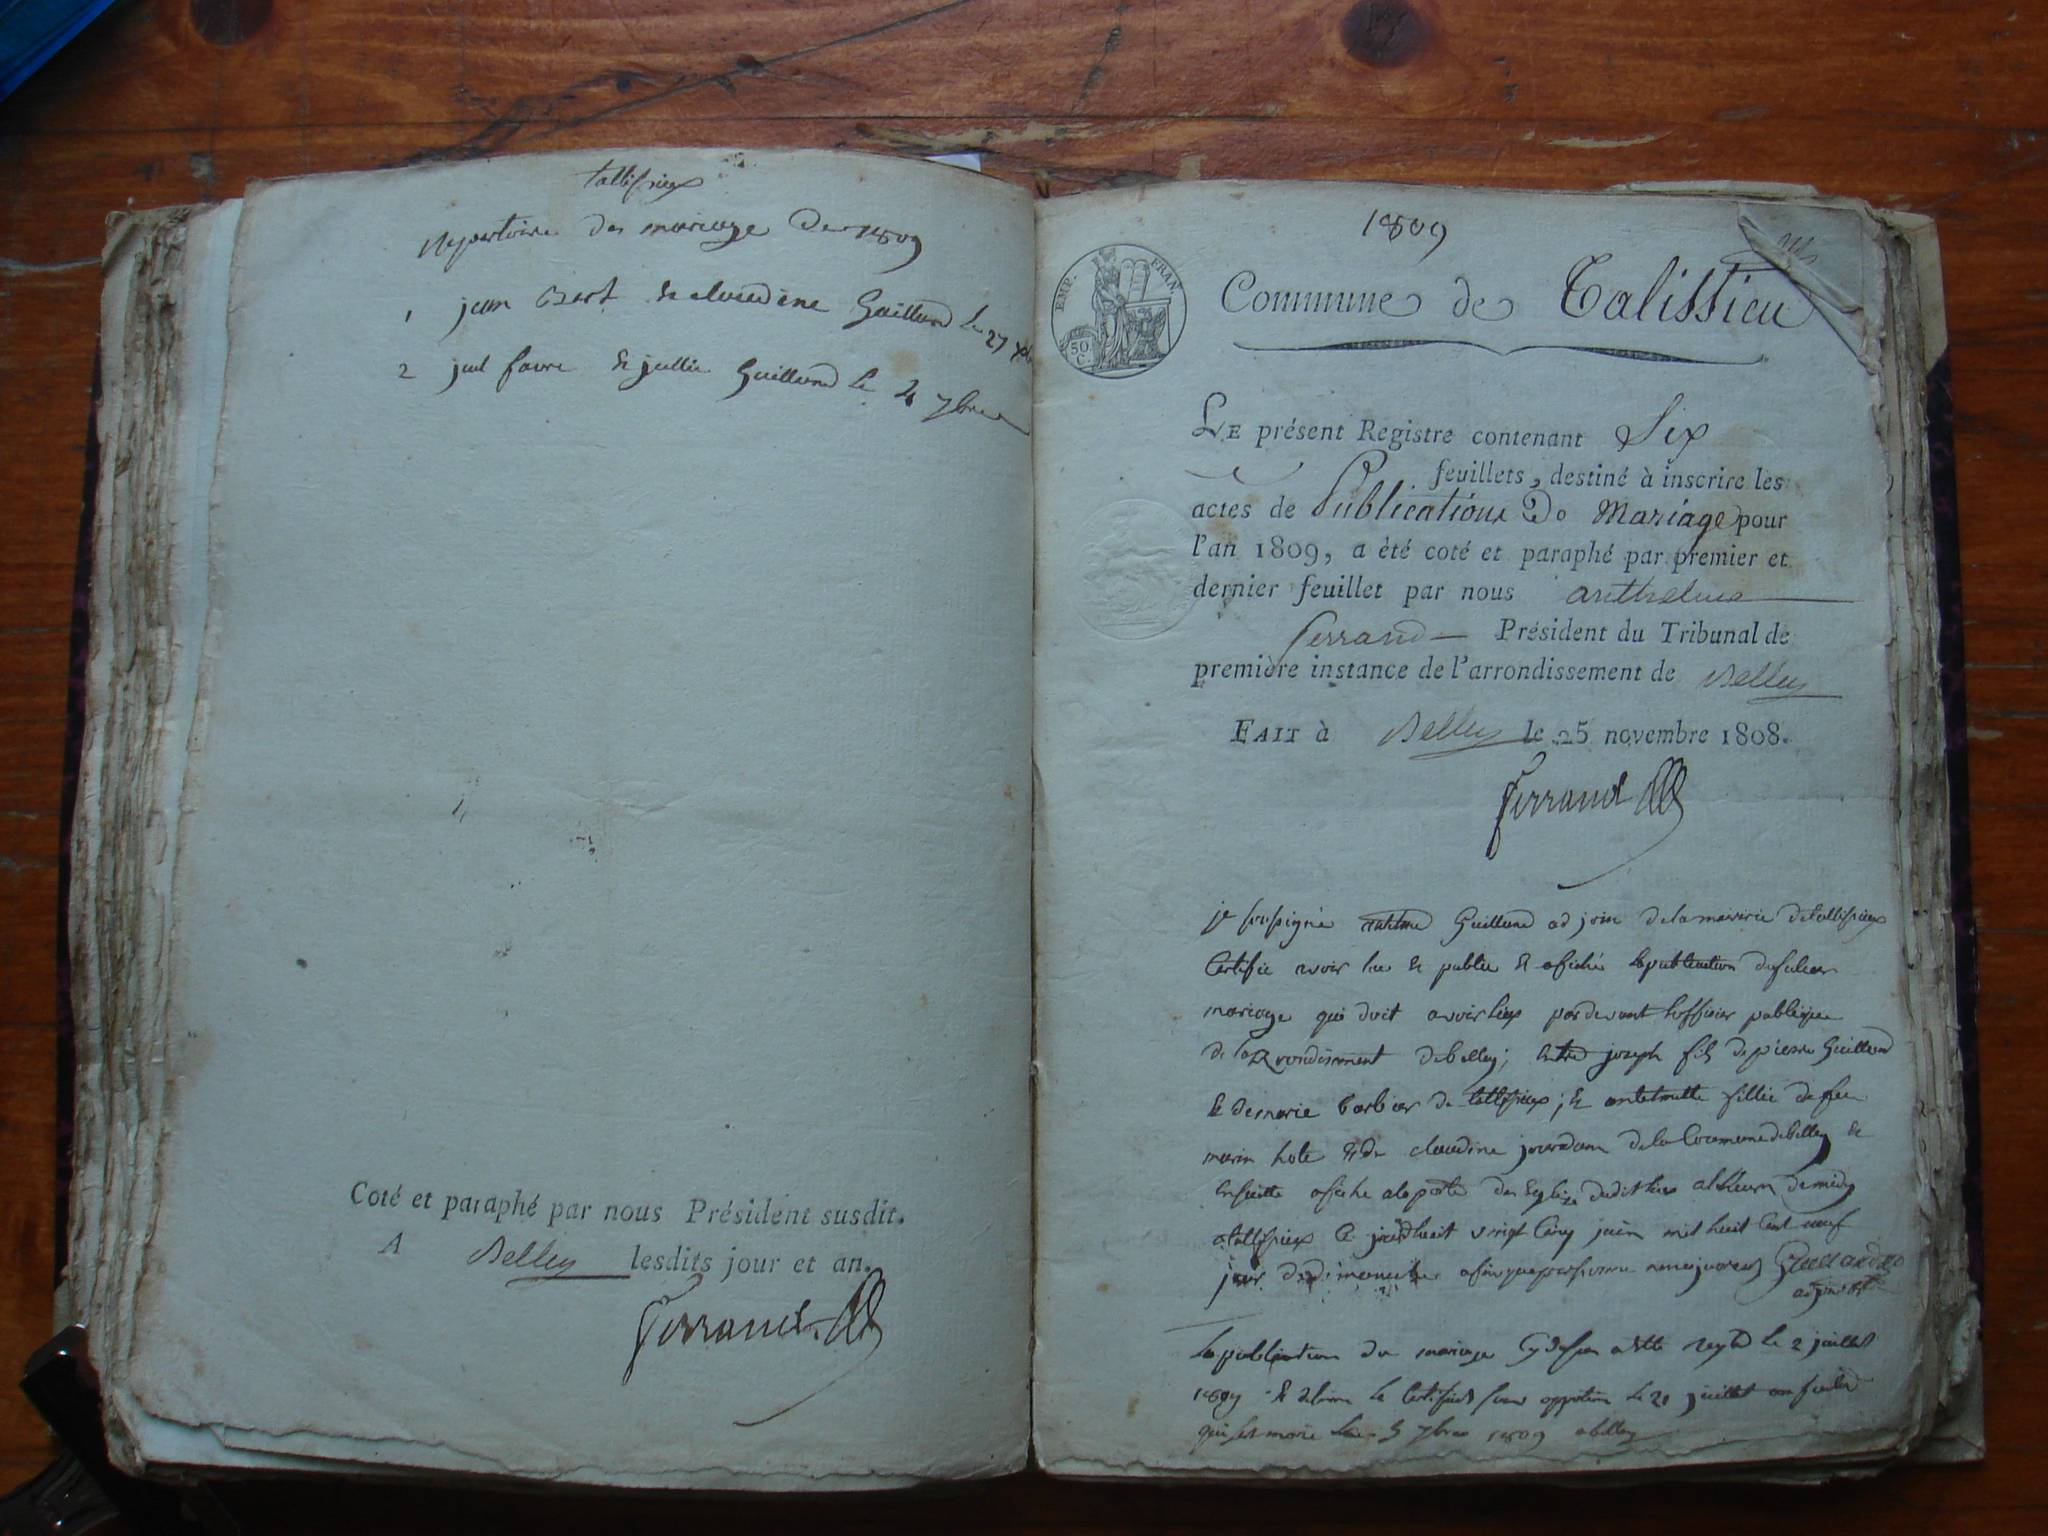 tallissieux
repertoire des mariage De 1809
1 jean Bert & claudine Guilland le 27
2 favre & jullie Guilland le 4 7bre
Coté et paraphé par nous Président susdit.
A Belley lesdits jour et an.
Ferrand
1809
EMP. FRAN.
50 C.
Commune de Talissieu
LE présent Registre contenant Six
feuillets, destiné à inscrire les
actes de Publications De Mariage pour
l'an 1809, a été coté et paraphé par premier et
dernier feuillet par nous anthelme
ferrand Président du Tribunal de
première instance de l'arrondissement de Belley
FAIT à Belley le 25 novembre 1808.
Ferrand
je soussigné Guilland adjoin de la mairie de tallissieux
Certifie avoir lue & publie & afiché la publication du futeur
mariage qui doit avoir lieux pardevant lofficier publique
de larondisement de belley; entre joseph fils de pierre Guilland
& de marie barbier de tallissieux; & fillie de feu
marin hote & de claudine jourdam de la Commune de belley &
ensuitte afiche a la porte de leglize dudit lieux a lheure de midy
a tallissieux ce jourdhuit vingt Cinq juin mil huit Cent neuf
jour de dimanche afin que personne Guilland
adjoint
la publication du mariage Cy desu le 2 juillet
1809 & delivre le Certificat san oppotion le 21 juillet
qui est marie le 5 7bre 1809 a belley